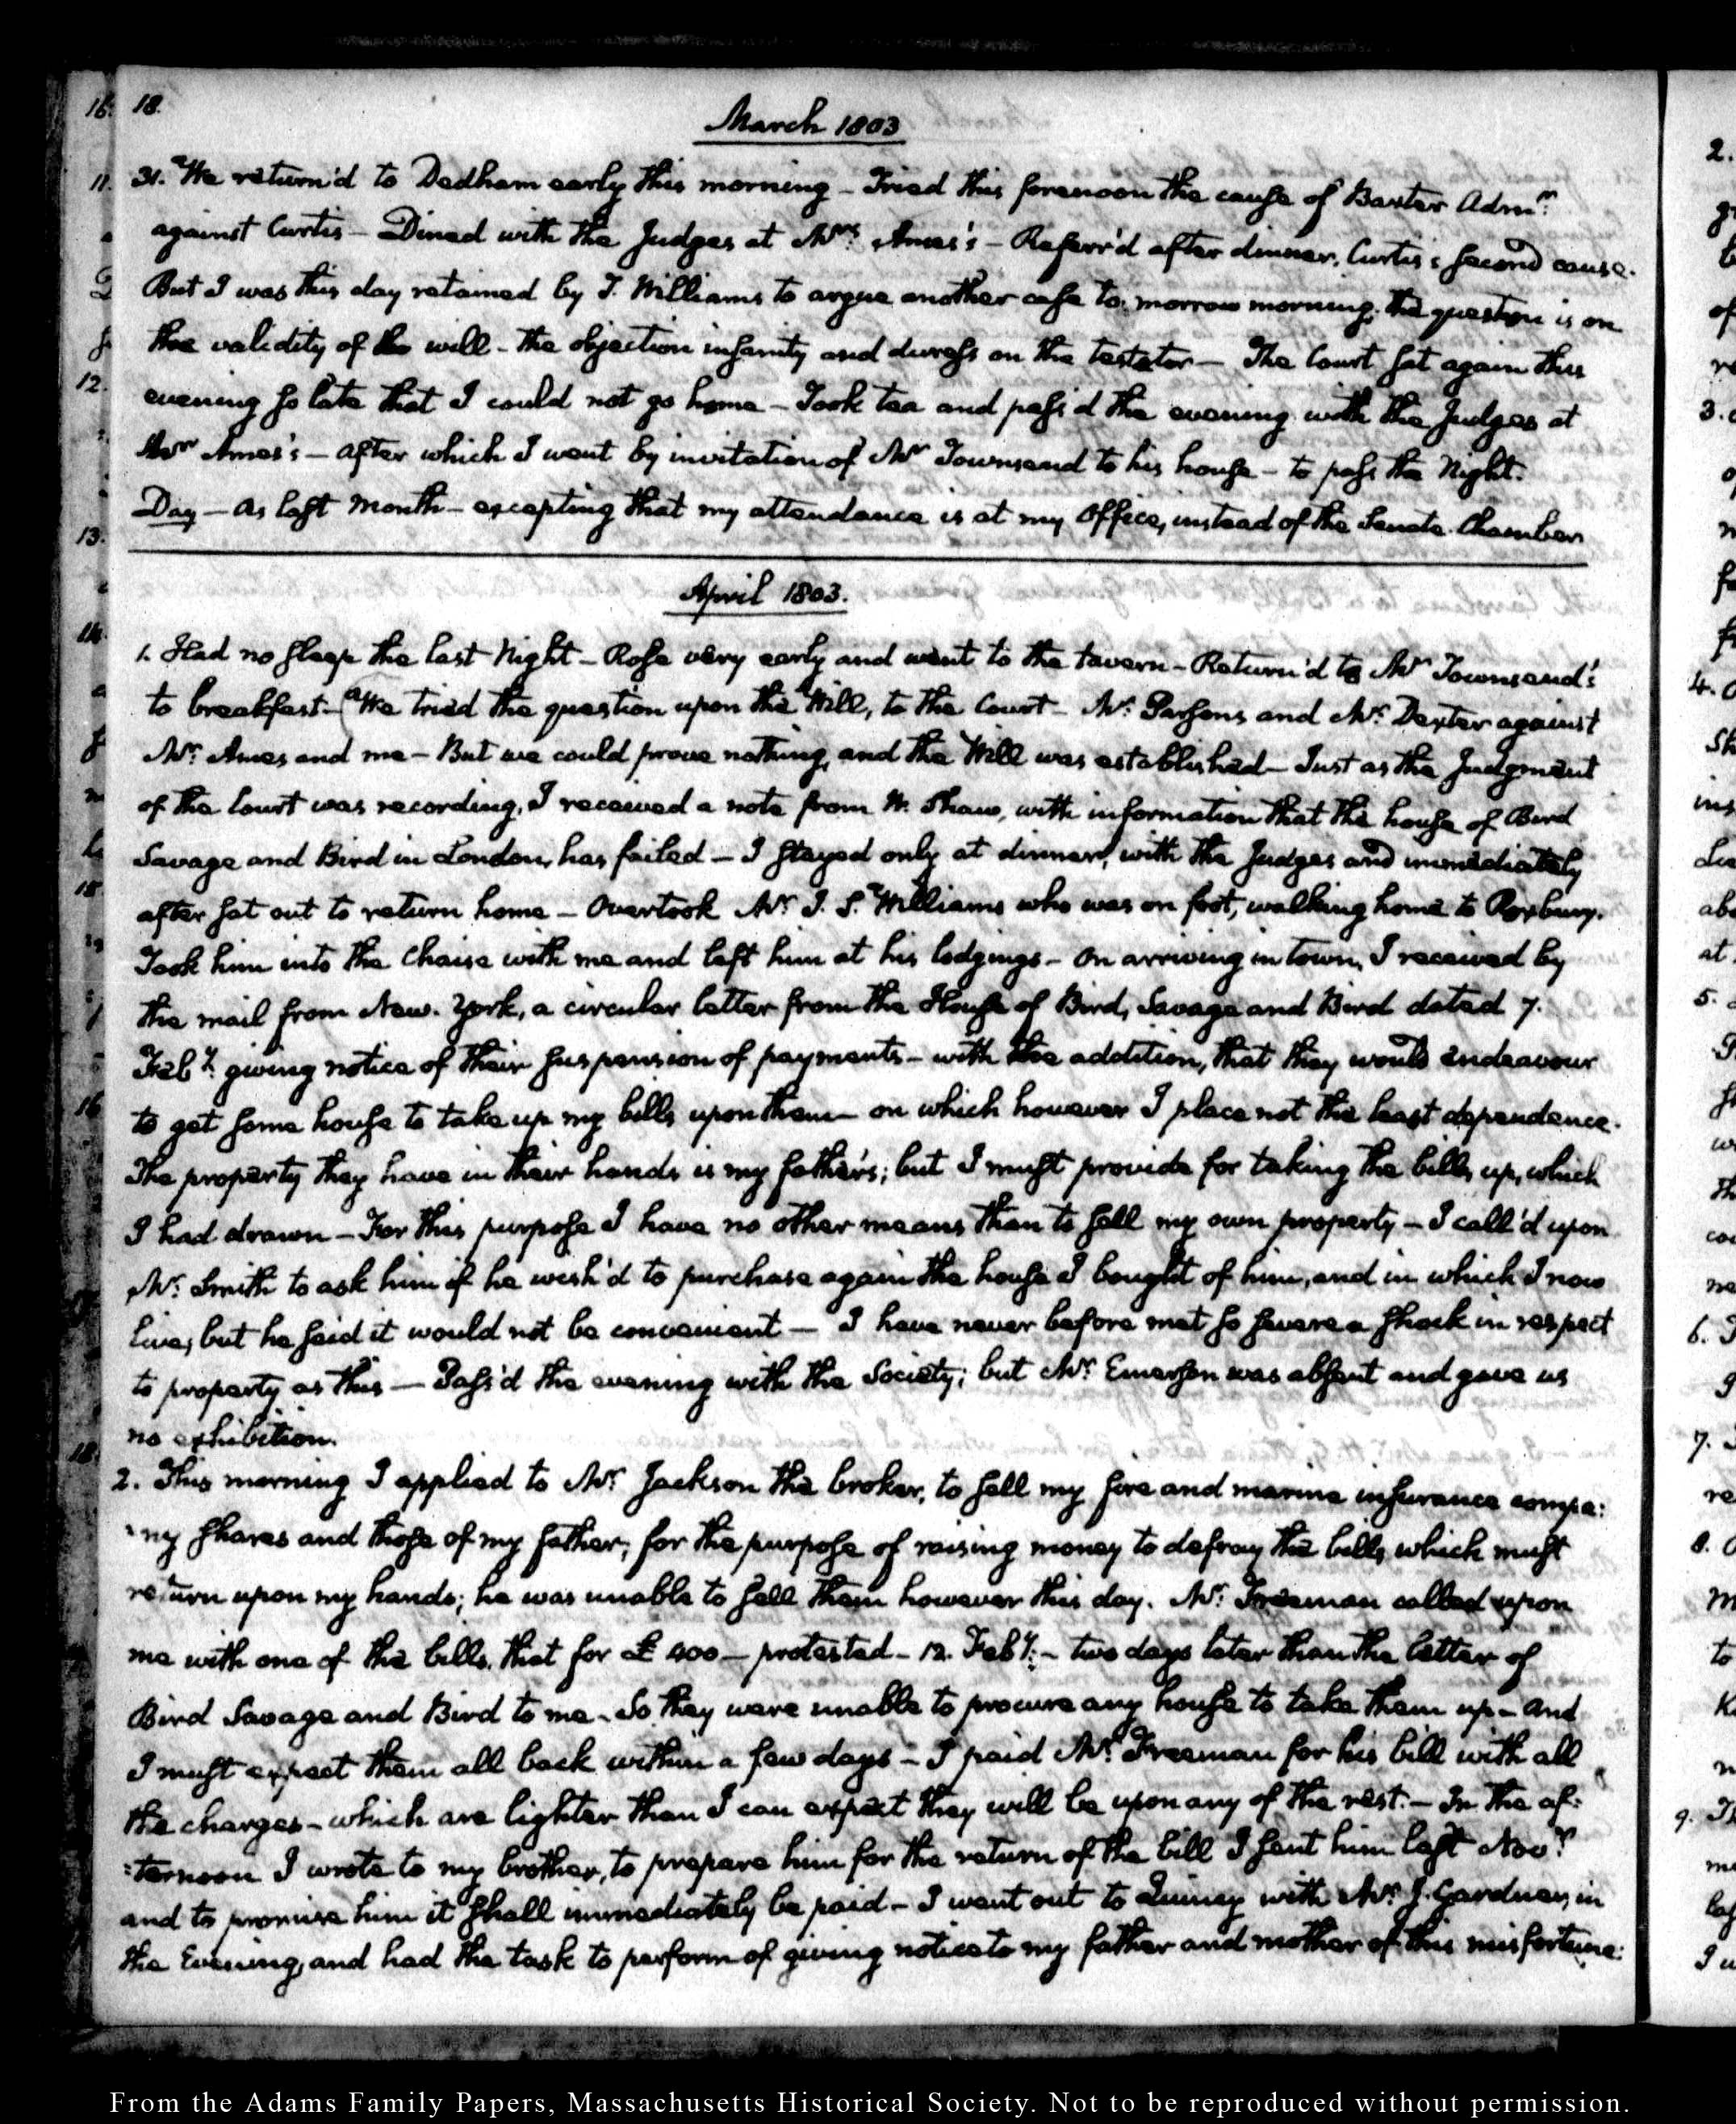 18.
March 1803
31. We return'd to Dedham early this morning - Tried this forenoon the cause of Baxter Admr.
against Curtis - Dined with the Judges at Mrs. Ames's - Referr'd after dinner, Curtis's second cause.
But I was this day retained by T. Williams to argue another case to-morrow morning, the question is on
the validity of the will - the objection insanity and duress on the testator - The Court sat again this
evening so late that I could not go home - Took tea and pass'd the evening with the Judges at
Ames's - after which I went by invitation of Mr Townsend to his house - to pass the Night.
Day - As last month - excepting that my attendance is at my Office, instead of the Senate-Chamber
April 1803.
1. Had no sleep the last Night - Rose very early and went to the tavern - Return'd to Mr Townsend's
to breakfast - We tried the question upon the Will, to the Court - Mr. Parsons and Mr. Dexter against
Mr. Ames and me - But we could prove nothing, and the Will was established - Just as the Judgment
of the Court was recording, I received a note from W. Shaw, with information that the house of Bird
Savage and Bird in London, has failed - I stayed only at dinner, with the Judges and immediately
after sat out to return home - Overtook Mr. J. S. Williams who was on foot, walking home to Roxbury.
Took him into the Chaise with me and left him at his lodgings - On arriving in town, I received by
the mail from New-York, a circular letter from the House of Bird, Savage and Bird dated 7.
Feby. giving notice of their suspension of payments - with the addition, that they would endeavour
to get some house to take up my bills upon them - on which however I place not the least dependence.
The property they have in their hands is my father's; but I must provide for taking the bills up, which
I had drawn - For this purpose I have no other means than to sell my own property - I call'd upon
Mr. Smith to ask him if he wish'd to purchase again the house I bought of him, and in which I now
live; but he said it would not be convenient - I have never before met so severe a shock in respect
to property as this - Pass'd the evening with the Society; but Mr. Emerson was absent and gave us
no exhibition.
2. This morning I applied to Mr. Jackson the broker, to sell my fire and marine insurance compa:
:ny shares and those of my father; for the purpose of raising money to defray the bills which must
return upon my hands; he was unable to sell them however this day. Mr. Freeman called upon
me with one of the bills, that for £ 400 - protested - 12. Feby. - two days later than the letter of
Bird Savage and Bird to me. So they were unable to procure any house to take them up - and
I must expect them all back within a few days - I paid Mr. Freeman for his bill with all
the charges - which are lighter than I can expect they will be upon any of the rest. - In the af:
:ternoon I wrote to my brother, to prepare him for the return of the bill I sent him last Novr.
and to promise him it shall immediately be paid - I went out to Quincy with Mr. J. Gardner, in
the Evening, and had the task to perform of giving notice to my father and mother of this misfortune:
From the Adams Family Papers, Massachusetts Historical Society. Not to be reproduced without permission.